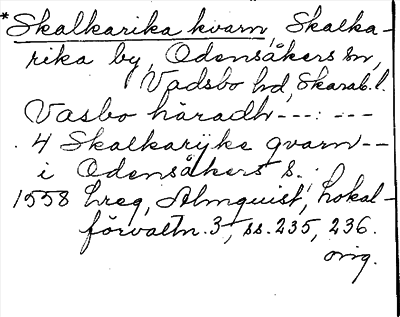 *Skalkarika kvarn, Skalka-
rika by, Odensåkers sn,
Vadsbo hd, Skarab. l.
Vasbo häradh---: ---
4 Skalkarijke qvarn--
i Odensåkers S.
1558 Lreg, Almquist, Lokal-
förvaltn. 3, ss. 235, 236.
orig.